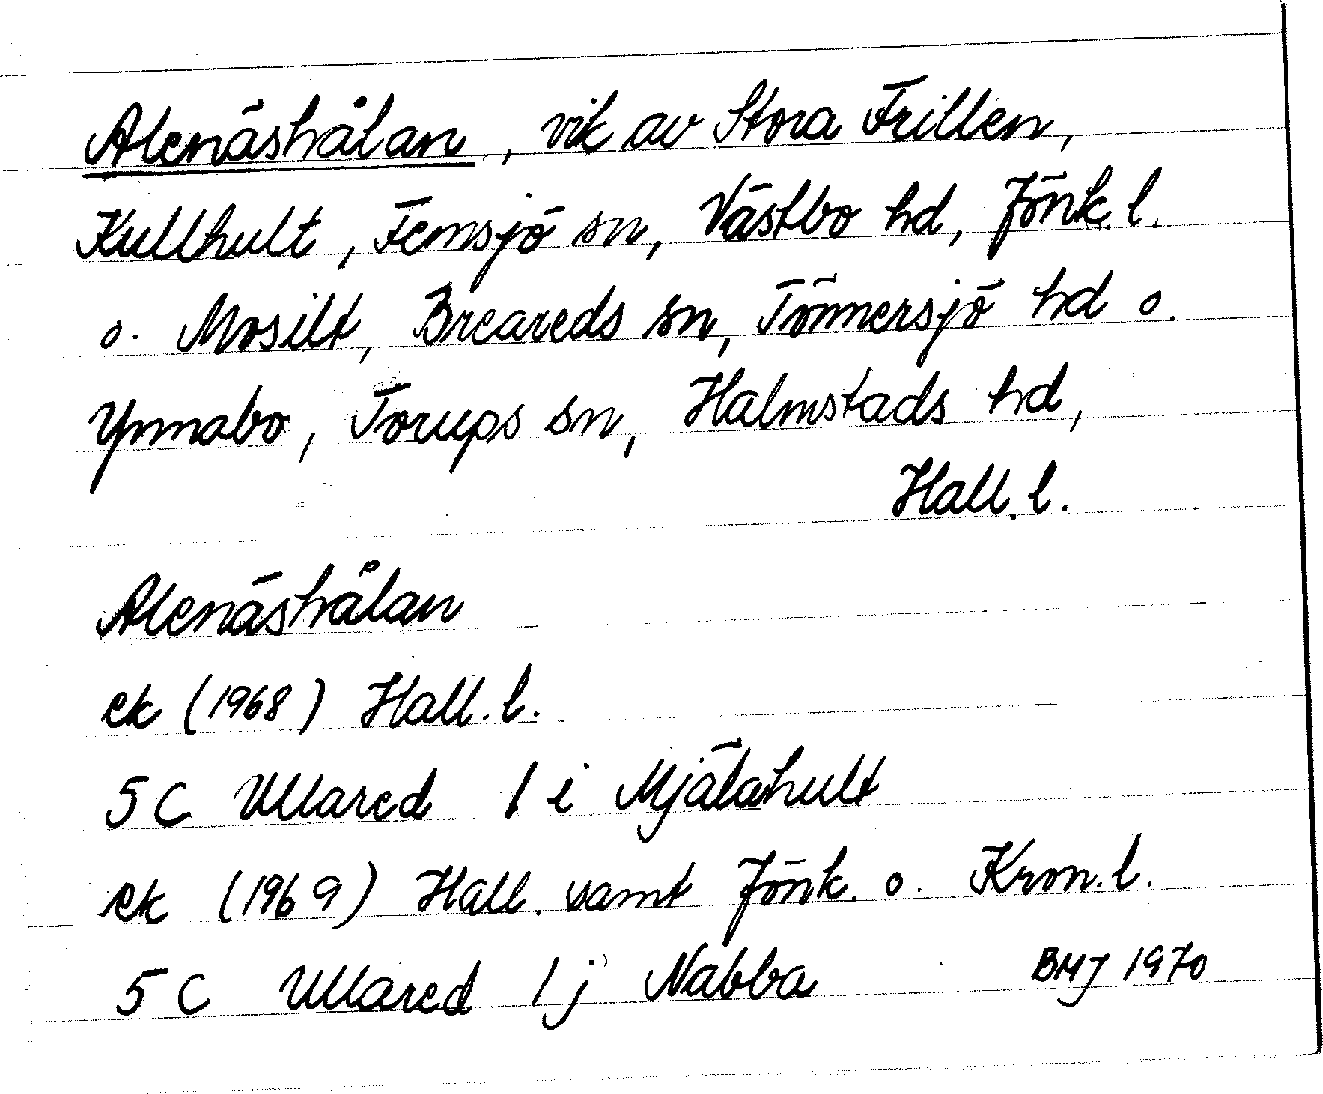 Alenäshålan, vik av Stora Frillen,
Kullhult, Femsjö sn, Västbo hd, Jönk. l.
o. Mosilt, Breareds sn, Tönnersjö hd o.
Ynnabo, Torups sn, Halmstads hd,
Hall. l.
Alenäshålan
ek (1968) Hall. l.
5 C Ullared 1 i Mjälahult
ek (1969) Hall. samt Jönk. o. Kron. l.
5 C Ullared 1 j Nabba BMJ 1970